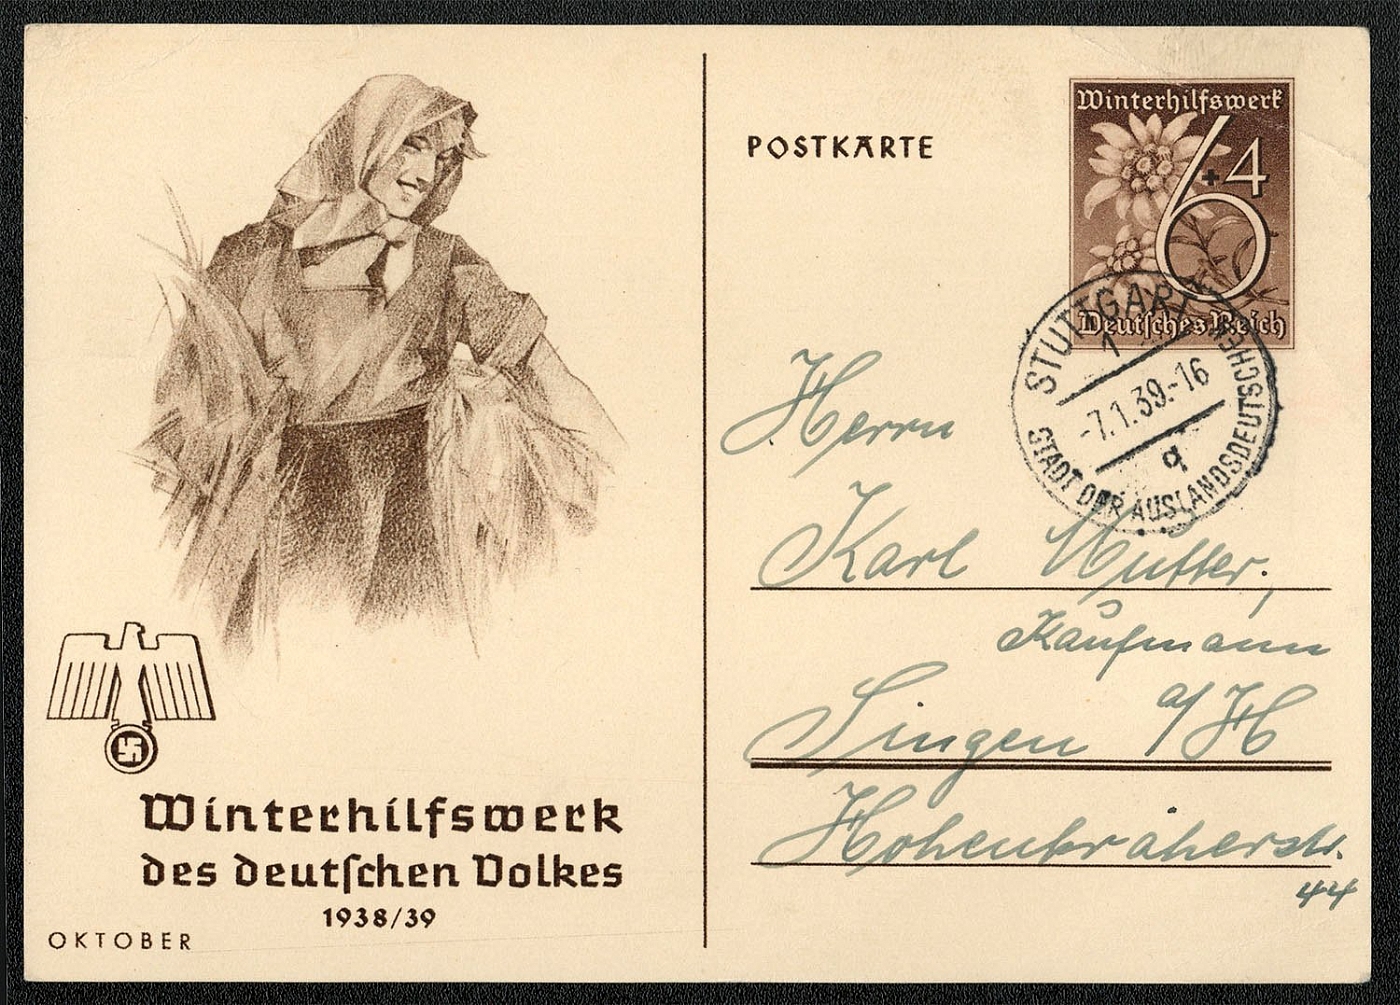 Winterhilfswerk
des deutschen Volkes
1938/39
OKTOBER
POSTKARTE
Winterhilfswerk
6+4
Deutsches Reich
STUTTGART
1
-7.1.39.-16
q
STADT DER AUSLANDSDEUTSCHEN
Herrn
Karl Mutter,
Kaufmann
Singen a/H
Hohenkräherstr.
44